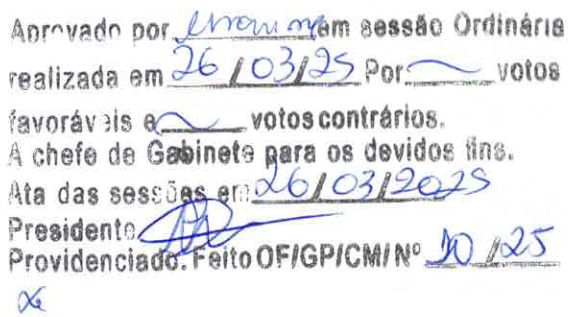 Aprovado por unanime em sessão Ordinária
realizada em 26/03/25 Por votos
favoráveis e votos contrários.
A chefe de Gabinete para os devidos fins.
Ata das sessões em 26/03/2025
Presidente
Providenciado. Feito OF/GP/CM/Nº 10/25